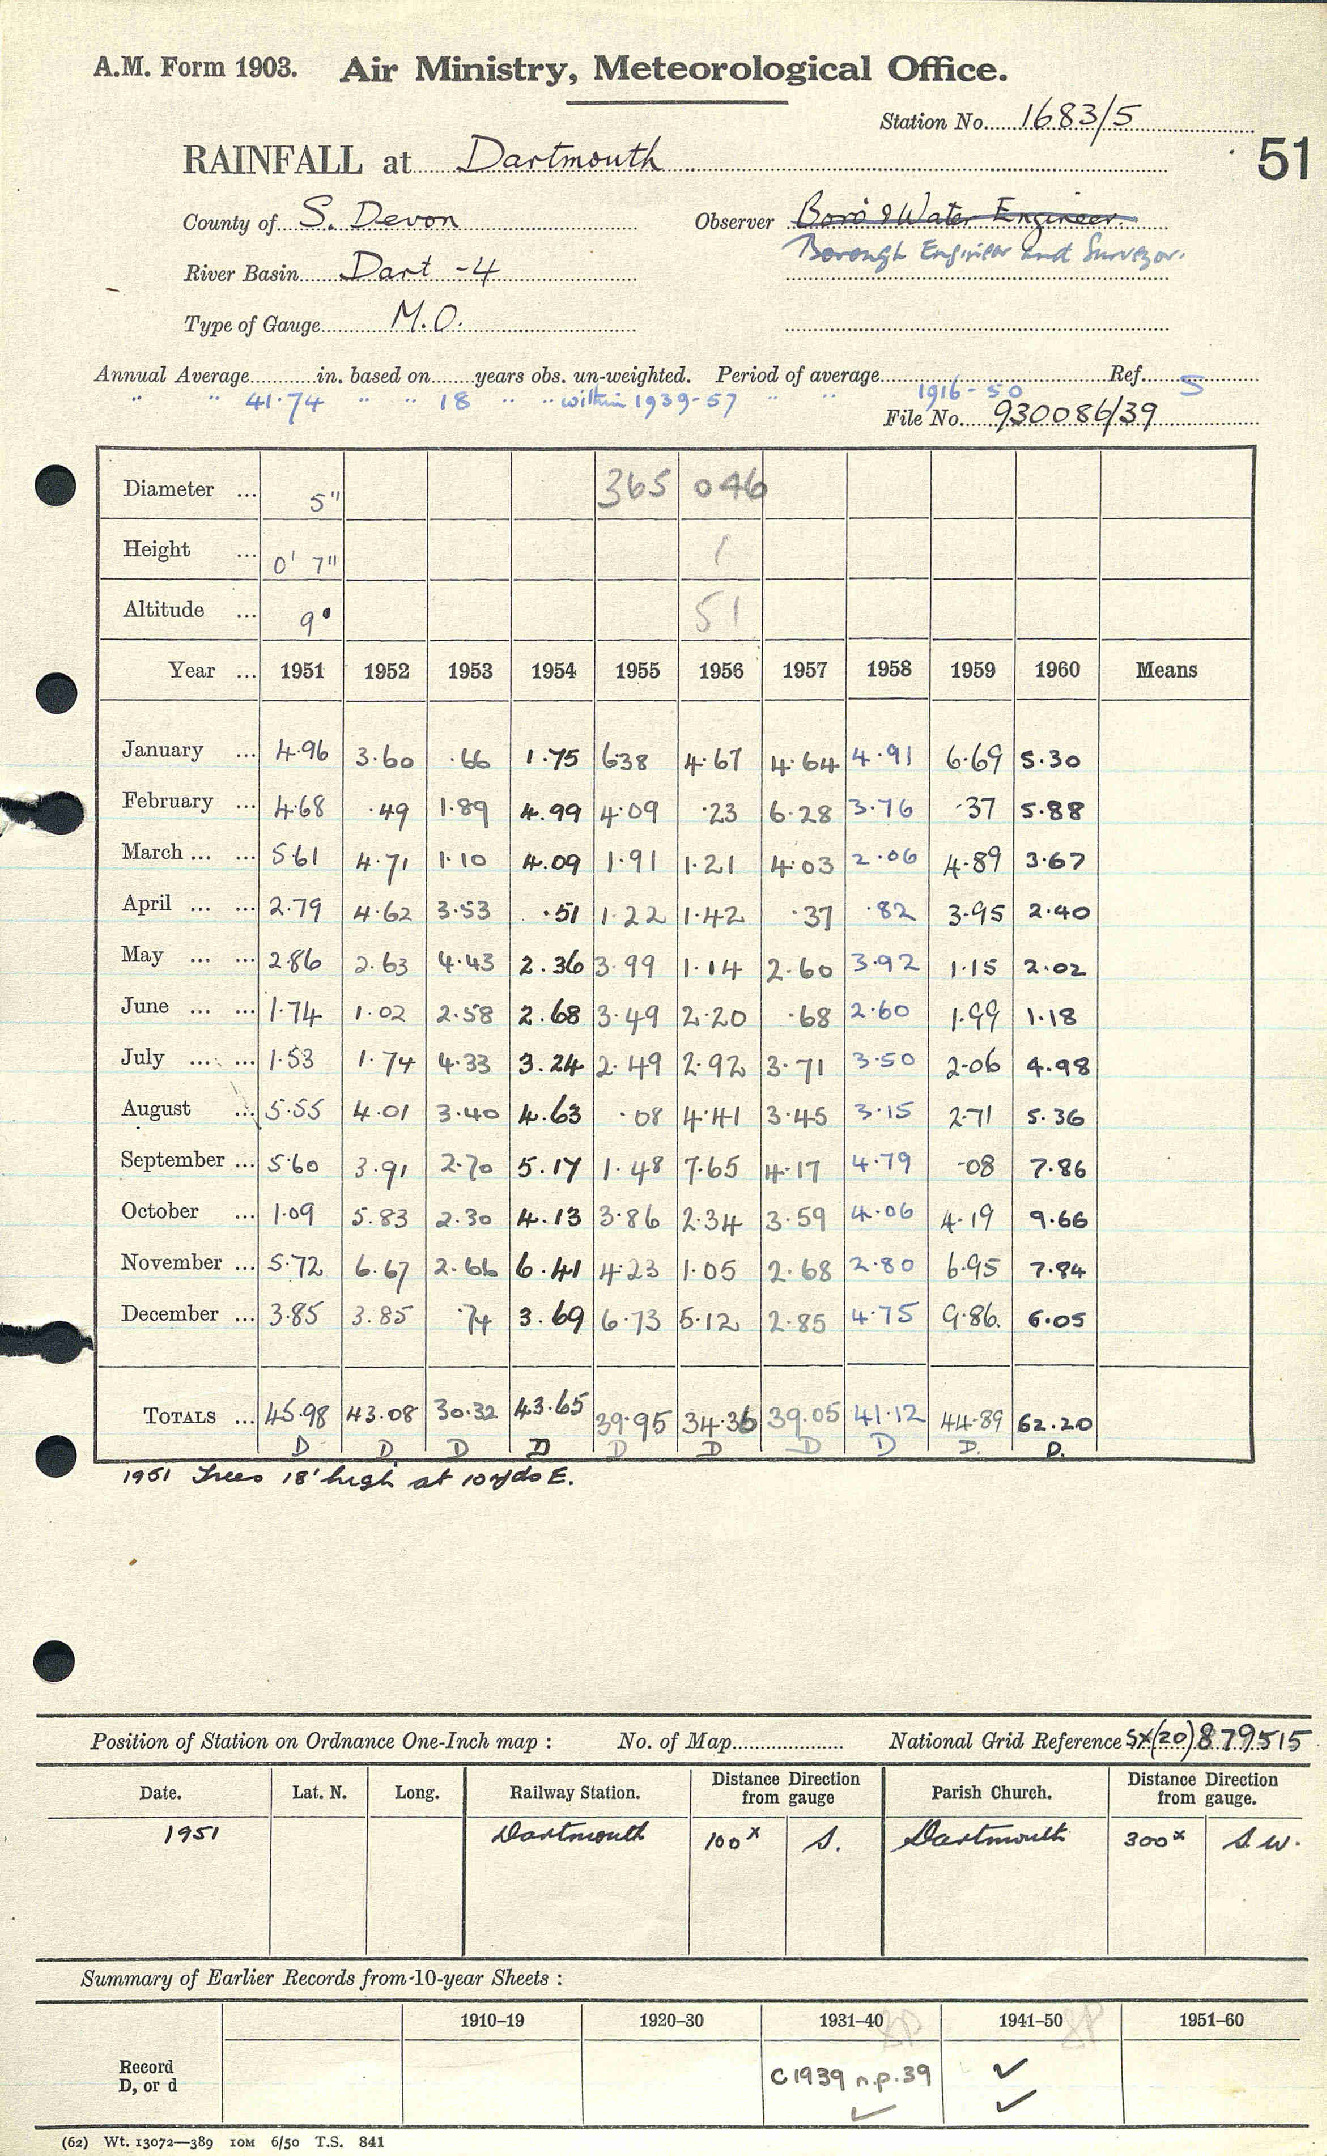 A.M. Form 1903. Air Ministry, Meteorological Office.
Station No. 1683/5
51
RAINFALL at Dartmouth
County of S. Devon Observer Boro' & Water Engineer.
Borough Engineer and Surveyor.
River Basin Dart - 4
Type of Gauge M.O.
Annual Average in. based on years obs. un-weighted. Period of average 1916-50 Ref. S
" " 41.74 " " 18 " " within 1939-57 " "
File No. 930086/39
Diameter ... 5" 365 046
Height ... 0' 7" 1
Altitude ... 9' 51
Year ... 1951 1952 1953 1954 1955 1956 1957 1958 1959 1960 Means
January ... 4.96 3.60 .66 1.75 6.38 4.67 4.64 4.91 6.69 5.30
February ... 4.68 .49 1.89 4.99 4.09 .23 6.28 3.76 .37 5.88
March ... ... 5.61 4.71 1.10 4.09 1.91 1.21 4.03 2.06 4.89 3.67
April ... ... 2.79 4.62 3.53 .51 1.22 1.42 .37 .82 3.95 2.40
May ... ... 2.86 2.63 4.43 2.36 3.99 1.14 2.60 3.92 1.15 2.02
June ... ... 1.74 1.02 2.58 2.68 3.49 2.20 .68 2.60 1.99 1.18
July ... ... 1.53 1.74 4.33 3.24 2.49 2.92 3.71 3.50 2.06 4.98
August ... 5.55 4.01 3.40 4.63 .08 4.41 3.45 3.15 2.71 5.36
September ... 5.60 3.91 2.70 5.17 1.48 7.65 4.17 4.79 .08 7.86
October ... 1.09 5.83 2.30 4.13 3.86 2.34 3.59 4.06 4.19 9.66
November ... 5.72 6.67 2.66 6.41 4.23 1.05 2.68 2.80 6.95 7.84
December ... 3.85 3.85 .74 3.69 6.73 5.12 2.85 4.75 9.86. 6.05
TOTALS ... 45.98 43.08 30.32 43.65 39.95 34.36 39.05 41.12 44.89 62.20
D D D D D D D D D. D.
1951 Trees 18' high at 10 yds E.
Position of Station on Ordnance One-Inch map : No. of Map National Grid Reference SX(20)879515
Date. Lat. N. Long. Railway Station. Distance Direction from gauge Parish Church. Distance Direction from gauge.
1951 Dartmouth 100x S. Dartmouth 300x S.W.
Summary of Earlier Records from 10-year Sheets :
1910–19 1920–30 1931–40 1941–50 1951–60
Record D, or d C1939 n.p.39 ✓
✓ ✓
(62) Wt. 13072—389 10M 6/50 T.S. 841